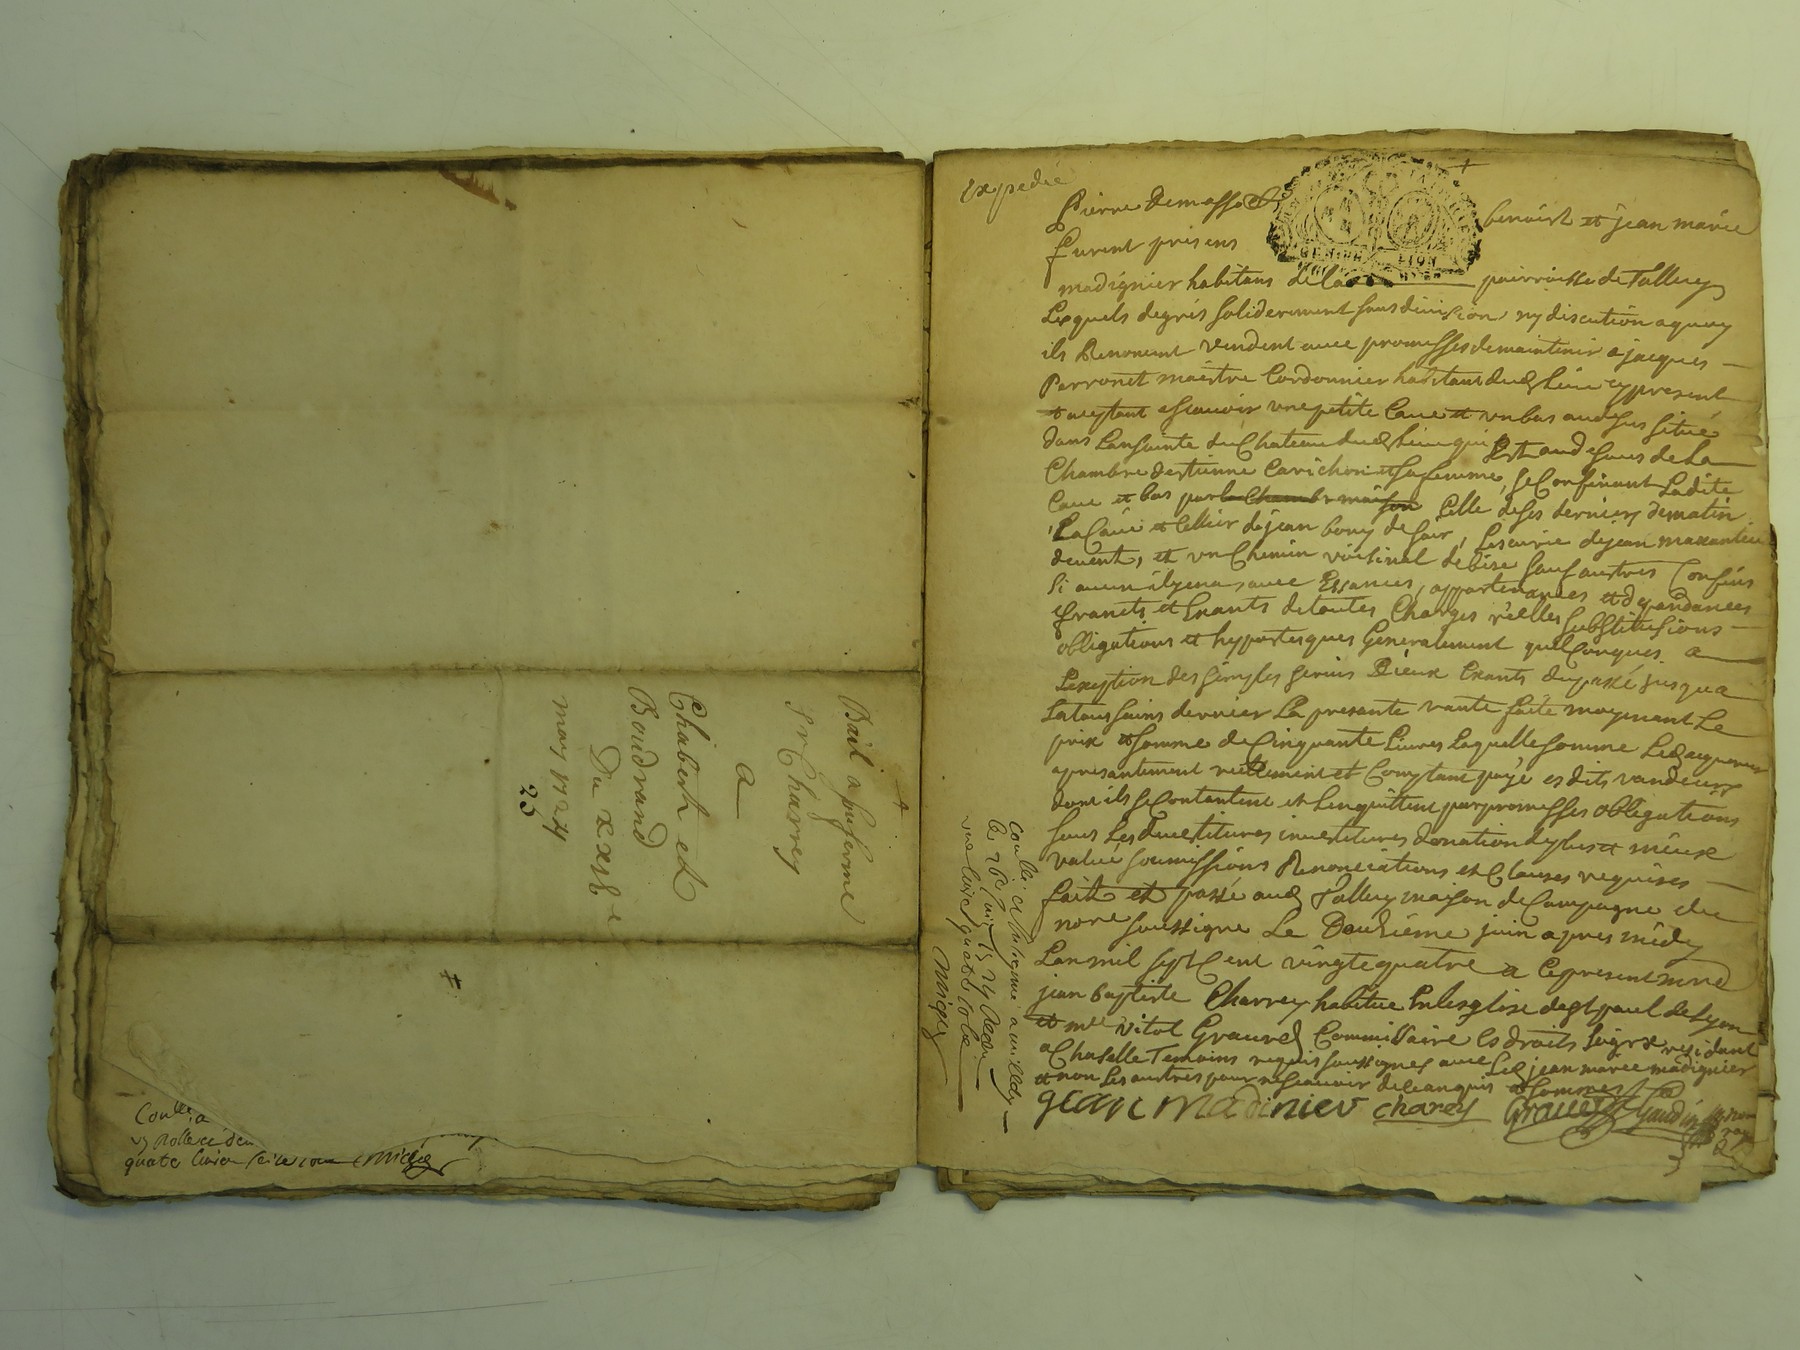 Bail a sufferme
Sr Charrey
a
Chabert et
Boudrand
Du xxxe
may 1724
25
Conllé a
quatre livres seize
expedié
Pierre Demasso &
furent presens benoist et jean marie
GENER LION
madignier habitans de la parroisse de Talluy
Lesquels de grés soliderement sans division ny discution a quoy
ils Renoncent vendent avec promesses de maintenir a jacques
Perronet maistre Cordonnier habitant dud lieu cy present
et aceptant scavoir une petite Cave et un bas audesus situé
dans Lansainte du Chateau dud lieu qui Est audesous de La
Chambre destienne Carichon et sa femme, se Confinant Ladite
Cave et bas par la Chambr maison Celle desd derniers de matin
La Cave et Cellier de jean bony de soir, Lescurie de jean
de vent, et un Chemin voisinal de bize sauf autres Confins
si aucun il y en a avec Essances, appartenances et dependances
francts et Exants de toutes Charges réelles substitusions
obligations et hypoteques Generalement quelConques a
Lexeption des simples servis Dieux Exants du passé jusqu a
La tous sains dernier La presante vante faite moyenant Le
prix et somme de Cinquante Livres Laquelle somme Led aquereur
a presantement réellement et Comptant payé esdits vandeurs
dont ils se Contantent et Lenquittent par promesses obligations
sous Les devestitures investitures donation de plus et mieux
value soumissions Renonciations et Clauses requises
fait et passé aud Talluy maison de Campagne du
nore soussigne Le Deuxiéme juin apres midy
Lan mil sept Cent vingt quatre a Ce present mre
jean baptiste Charrey habitué En Lesglise de st paul de Lyon
et mre vital Graured Commissaire Es droits seigrx residant
a Chaselle Temoins requis soussignes avec Led jean marie madignier
et non Les autres pour ne scavoir de Ce anquis et sommes
jean madinier charey Graured Gaudin
Conllé et insigné a
le 26 juin 1724 Reçu
une livre quatre sols